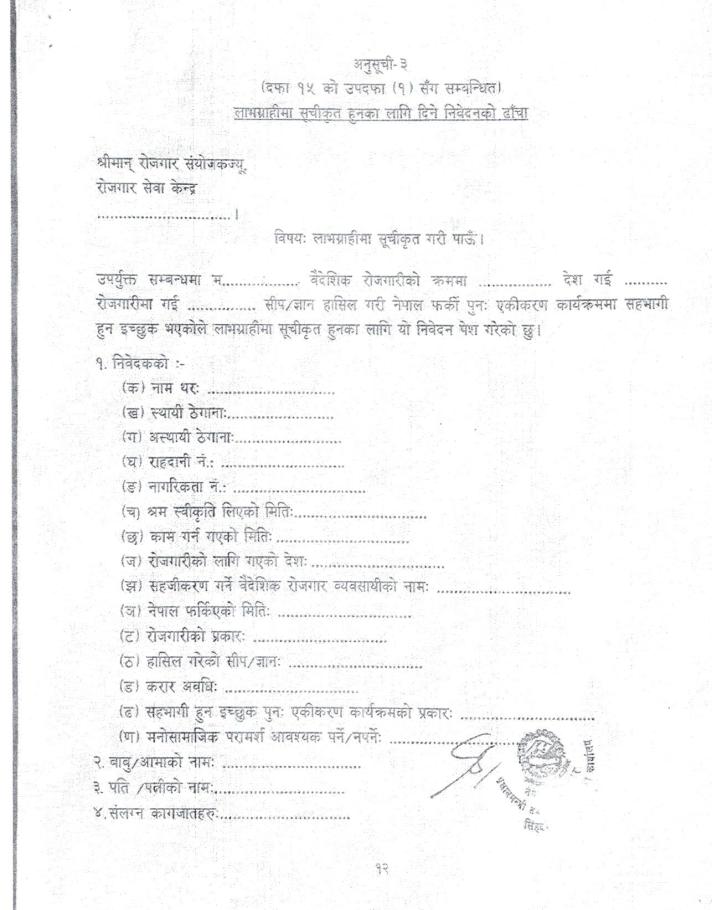 अनुसूची-३
(दफा १५ को उपदफा (१) सँग सम्बन्धित)
लाभग्राहीमा सूचीकृत हुनका लागि दिने निवेदनको ढाँचा
श्रीमान् रोजगार संयोजकज्यू,
रोजगार सेवा केन्द्र
.................................।
विषयः लाभग्राहीमा सूचीकृत गरी पाऊँ।
उपर्युक्त सम्बन्धमा म................. वैदेशिक रोजगारीको क्रममा ................ देश गई ..........
रोजगारीमा गई ............... सीप/ज्ञान हासिल गरी नेपाल फर्की पुनः एकीकरण कार्यक्रममा सहभागी
हुन इच्छुक भएकोले लाभग्राहीमा सूचीकृत हुनका लागि यो निवेदन पेश गरेको छु।
१. निवेदकको :-
(क) नाम थरः ..............................
(ख) स्थायी ठेगानाः.........................
(ग) अस्थायी ठेगानाः.........................
(घ) राहदानी नं.: .............................
(ङ) नागरिकता नं.: ...............................
(च) श्रम स्वीकृति लिएको मितिः...............................
(छ) काम गर्न गएको मितिः ...............................
(ज) रोजगारीको लागि गएको देशः...............................
(झ) सहजीकरण गर्ने वैदेशिक रोजगार व्यवसायीको नामः ...............................
(ञ) नेपाल फर्किएको मितिः ...............................
(ट) रोजगारीको प्रकारः ...............................
(ठ) हासिल गरेको सीप/ज्ञानः ...............................
(ड) करार अवधिः ...............................
(ढ) सहभागी हुन इच्छुक पुनः एकीकरण कार्यक्रमको प्रकारः ...............................
(ण) मनोसामाजिक परामर्श आवश्यक पर्ने/नपर्नेः ...............................
२. बाबु/आमाको नामः ...............................
३. पति /पत्नीको नामः...............................
४.संलग्न कागजातहरुः...............................
१२